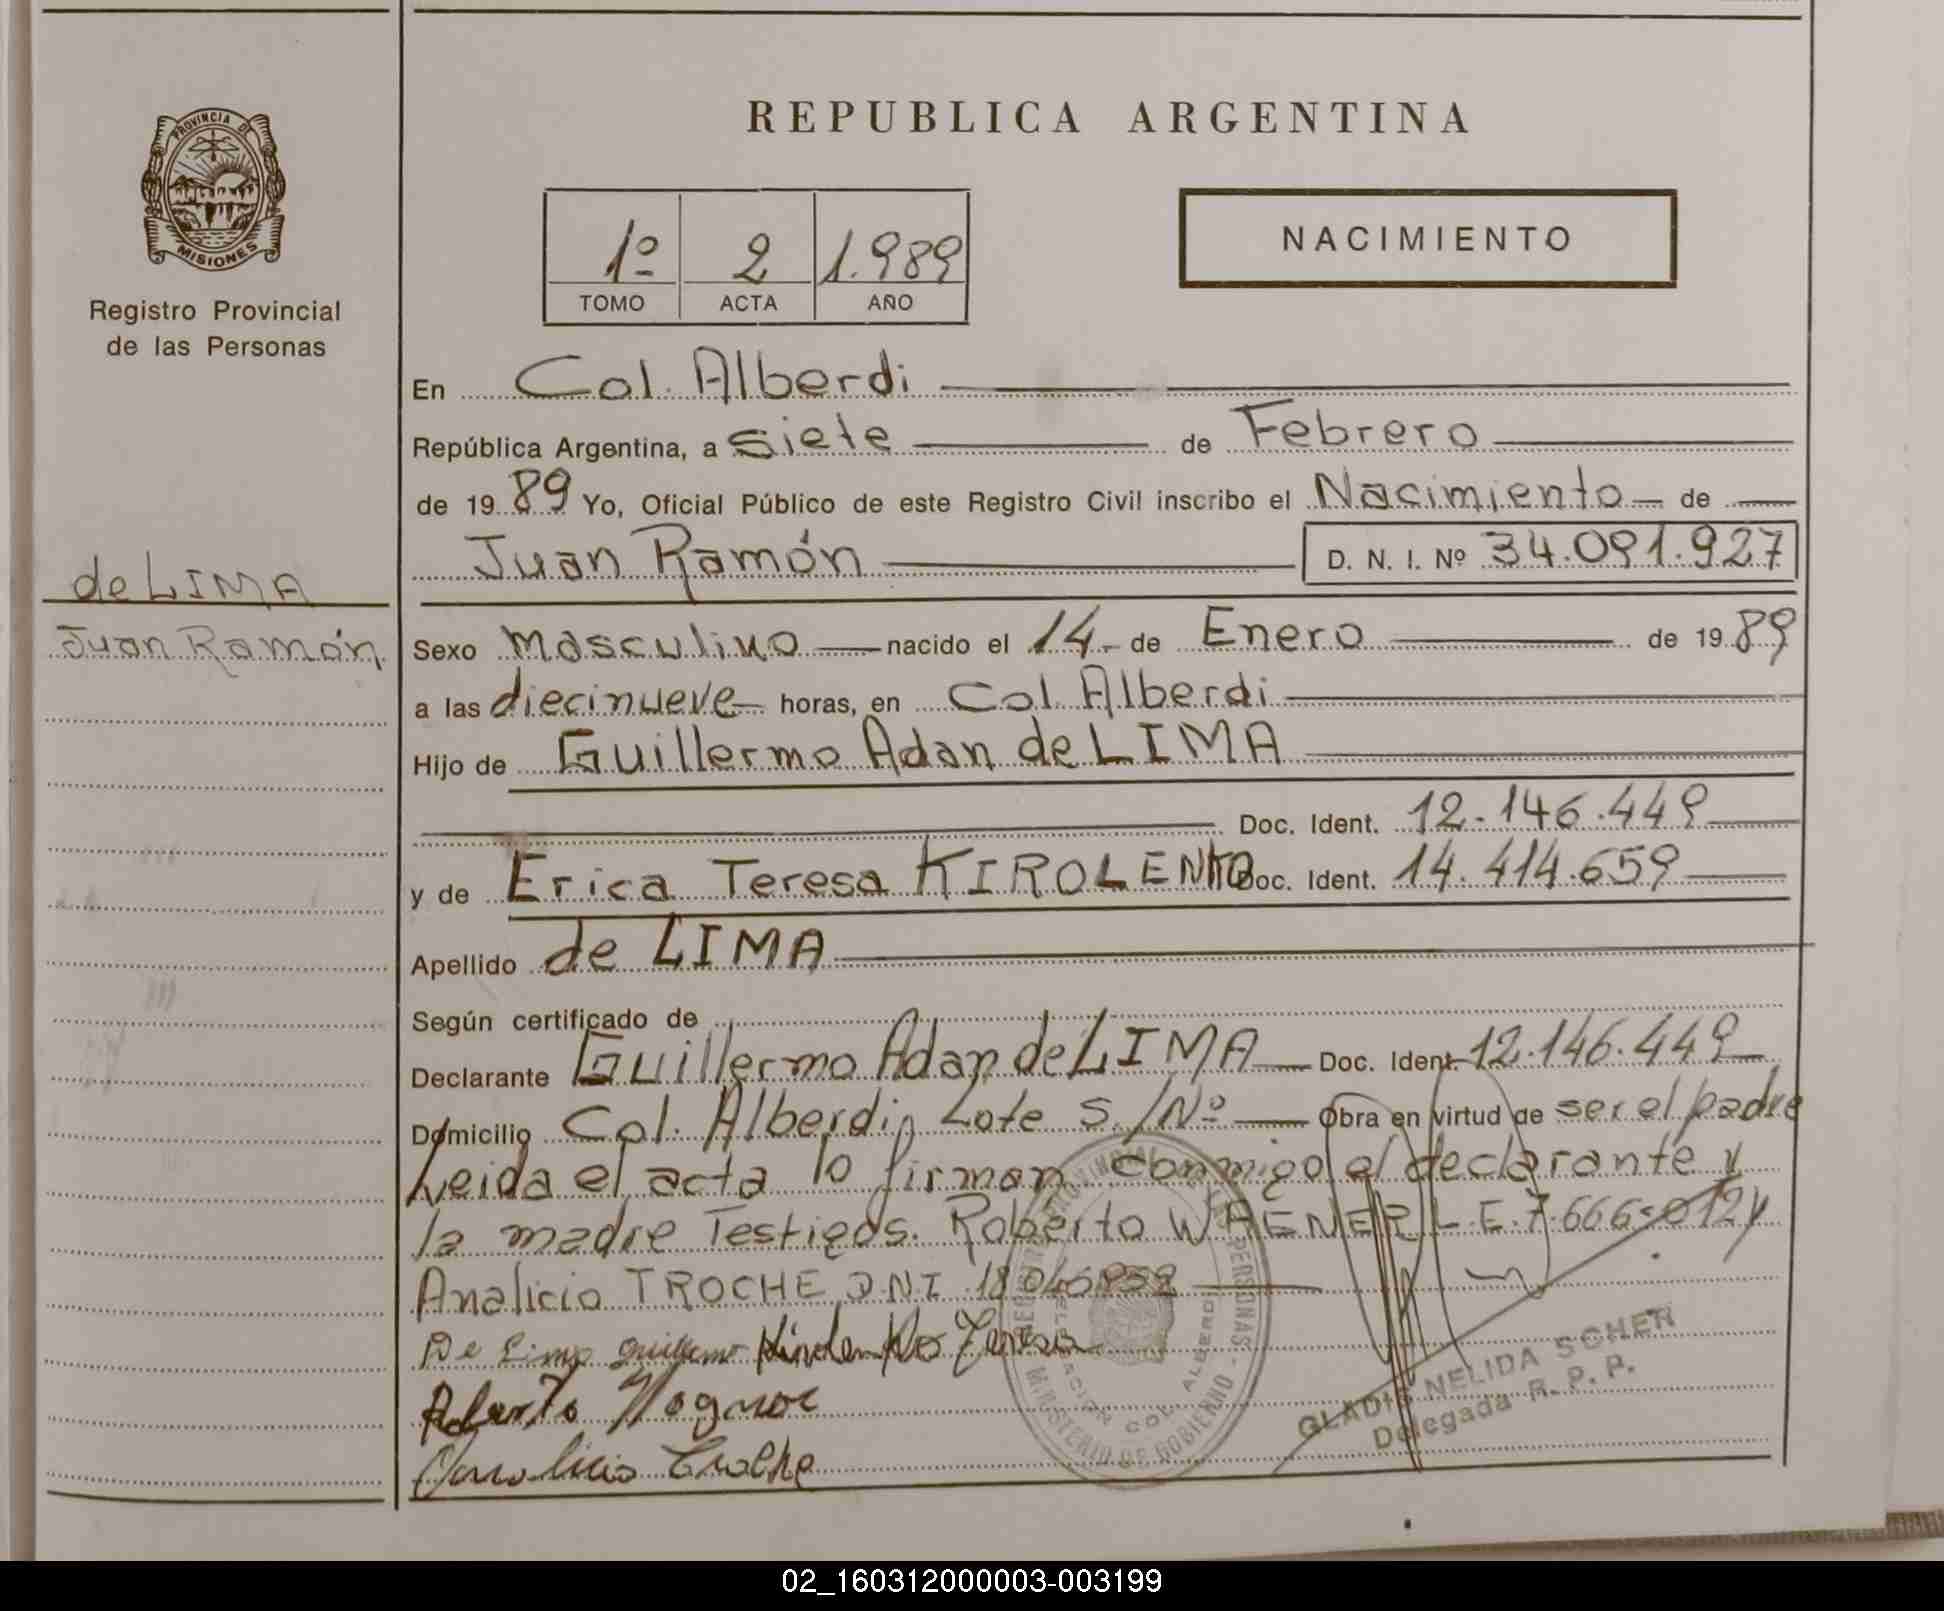 REPUBLICA ARGENTINA
PROVINCIA DE
MISIONES
Registro Provincial
de las Personas
1º 2 1.989
TOMO ACTA AÑO
NACIMIENTO
de LIMA
Juan Ramón
En Col. Alberdi
República Argentina, a siete de Febrero
de 1989 Yo, Oficial Público de este Registro Civil inscribo el Nacimiento de
Juan Ramón D. N. I. Nº 34.091.927
Sexo masculino nacido el 14 de Enero de 1989
a las diecinueve horas, en Col. Alberdi
Hijo de Guillermo Adan de LIMA
Doc. Ident. 12.146.449
y de Erica Teresa KIROLENKO Doc. Ident. 14.414.659
Apellido de LIMA
Según certificado de
Declarante Guillermo Adan de LIMA Doc. Ident. 12.146.449
Domicilio Col. Alberdi, Lote S/Nº Obra en virtud de ser el padre
Leida el acta lo firman conmigo el declarante y
la madre Testigos. Roberto WAGNER L.E. 7.666.012 y
Analicio TROCHE DNI
De Lima Guillermo Kirolenko Teresa
Roberto Wagner
Analicio Troche
MINISTERIO DE GOBIERNO
COL. ALBERDI
GLADIS NELIDA SCHER
Delegada R. P. P.
02_160312000003-003199